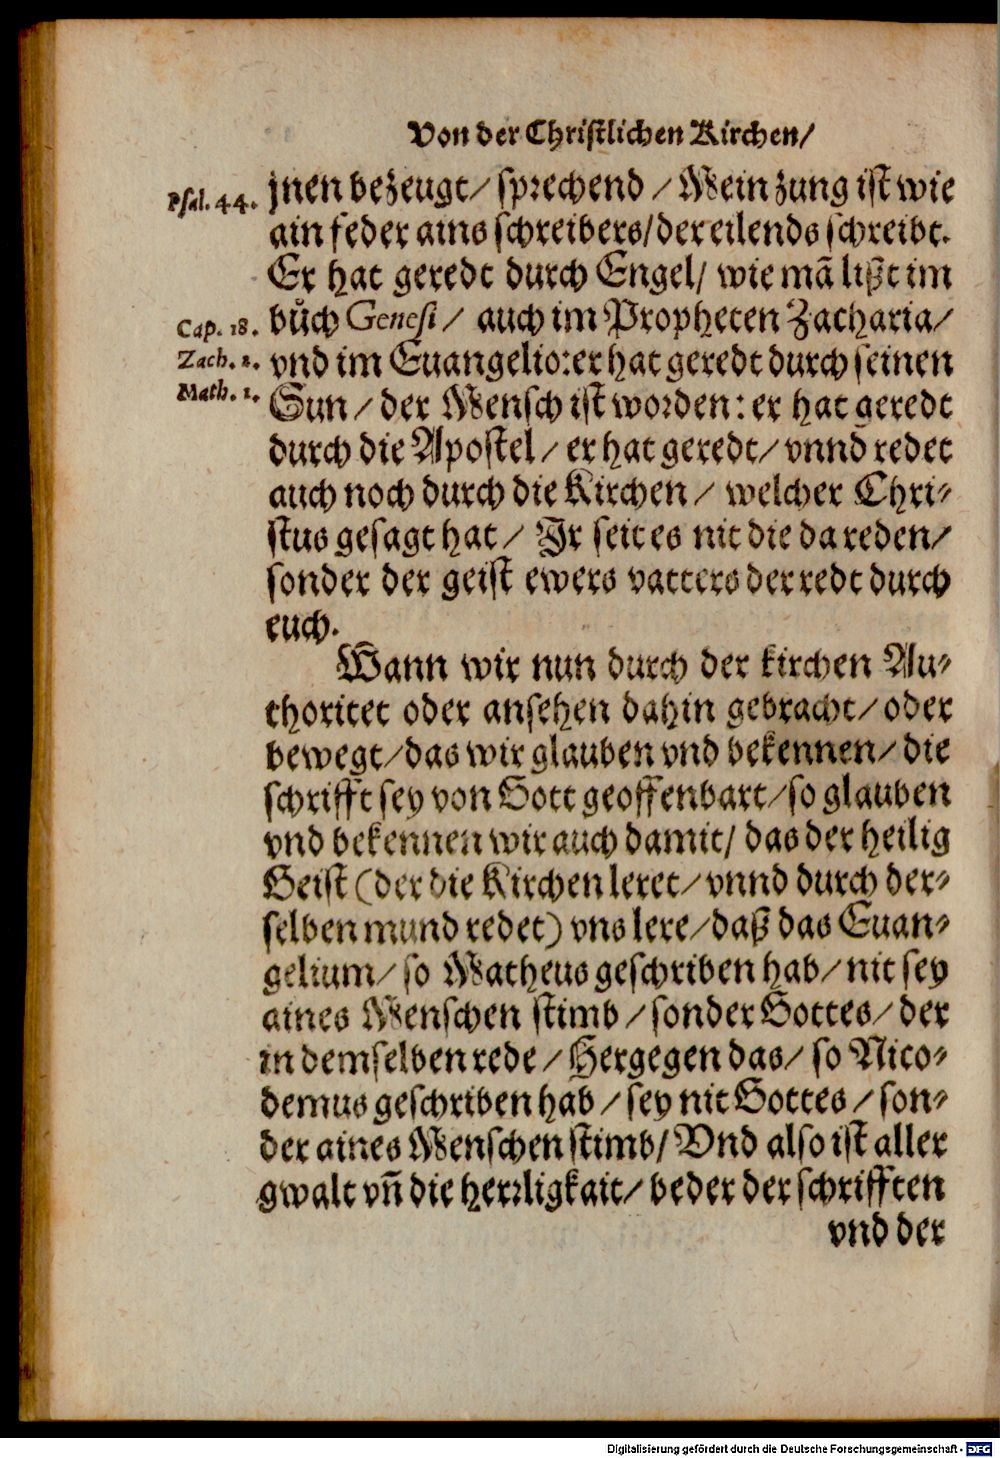 Von der Christlichen Kirchen/
Psal. 44. jnen bezeugt/ sprechend / Mein zung ist wie
ain feder ains schreibers/ der eilends schreibt.
Er hat geredt durch Engel/ wie mã lißt im
Cap. 18. bůch Genesi/ auch im Propheten Zacharia/
Zach. 1. vnd im Euangelio: er hat geredt durch seinen
Math. 1. Sun / der Mensch ist worden: er hat geredt
durch die Apostel/ er hat geredt/ vnnd redet
auch noch durch die Kirchen / welcher Chri⸗
stus gesagt hat / Ir seit es nit die da reden/
sonder der geist ewers vatters der redt durch
euch.
Wann wir nun durch der kirchen Au⸗
thoritet oder ansehen dahin gebracht/ oder
bewegt/ das wir glauben vnd bekennen/ die
schrifft sey von Gott geoffenbart/ so glauben
vnd bekennen wir auch damit/ das der heilig
Geist (der die Kirchen leret/ vnnd durch der⸗
selben mund redet) vns lere/ daß das Euan⸗
gelium/ so Matheus geschriben hab/ nit sey
aines Menschen stimb / sonder Gottes/ der
in demselben rede / Hergegen das/ so Nico⸗
demus geschriben hab / sey nit Gottes / son⸗
der aines Menschen stimb/ Vnd also ist aller
gwalt vñ die herrligkait/ beder der schrifften
vnd der
Digitalisierung gefördert durch die Deutsche Forschungsgemeinschaft - DFG